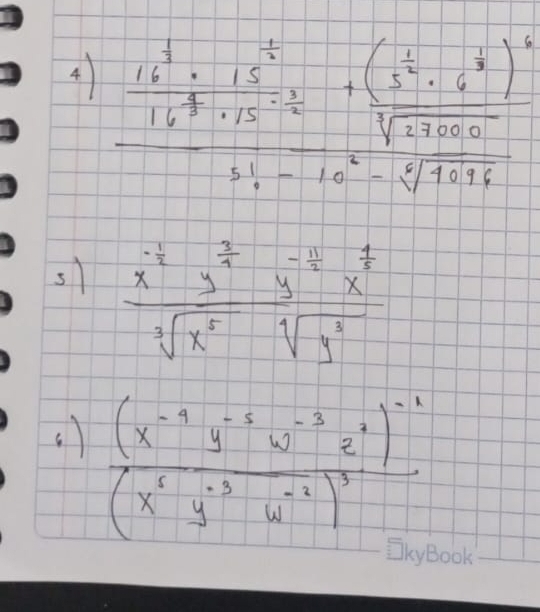 4) \frac{\frac{16^{\frac{1}{3}} \cdot 15^{\frac{1}{2}}}{16^{\frac{4}{3}} \cdot 15^{-\frac{3}{2}}} + \frac{\left(5^{\frac{1}{2}} \cdot 6^{\frac{1}{3}}\right)^{6}}{\sqrt[3]{27000}}}{5! - 10^{2} - \sqrt[6]{4096}}
5) \frac{x^{-\frac{1}{2}} y^{\frac{3}{4}} y^{-\frac{11}{2}} x^{\frac{4}{5}}}{\sqrt[3]{x^{5}} \sqrt[4]{y^{3}}}
6) \frac{\left(x^{-4} y^{-5} w^{-3} z^{2}\right)^{-1}}{\left(x^{5} y^{-3} w^{-2}\right)^{3}}
SkyBook